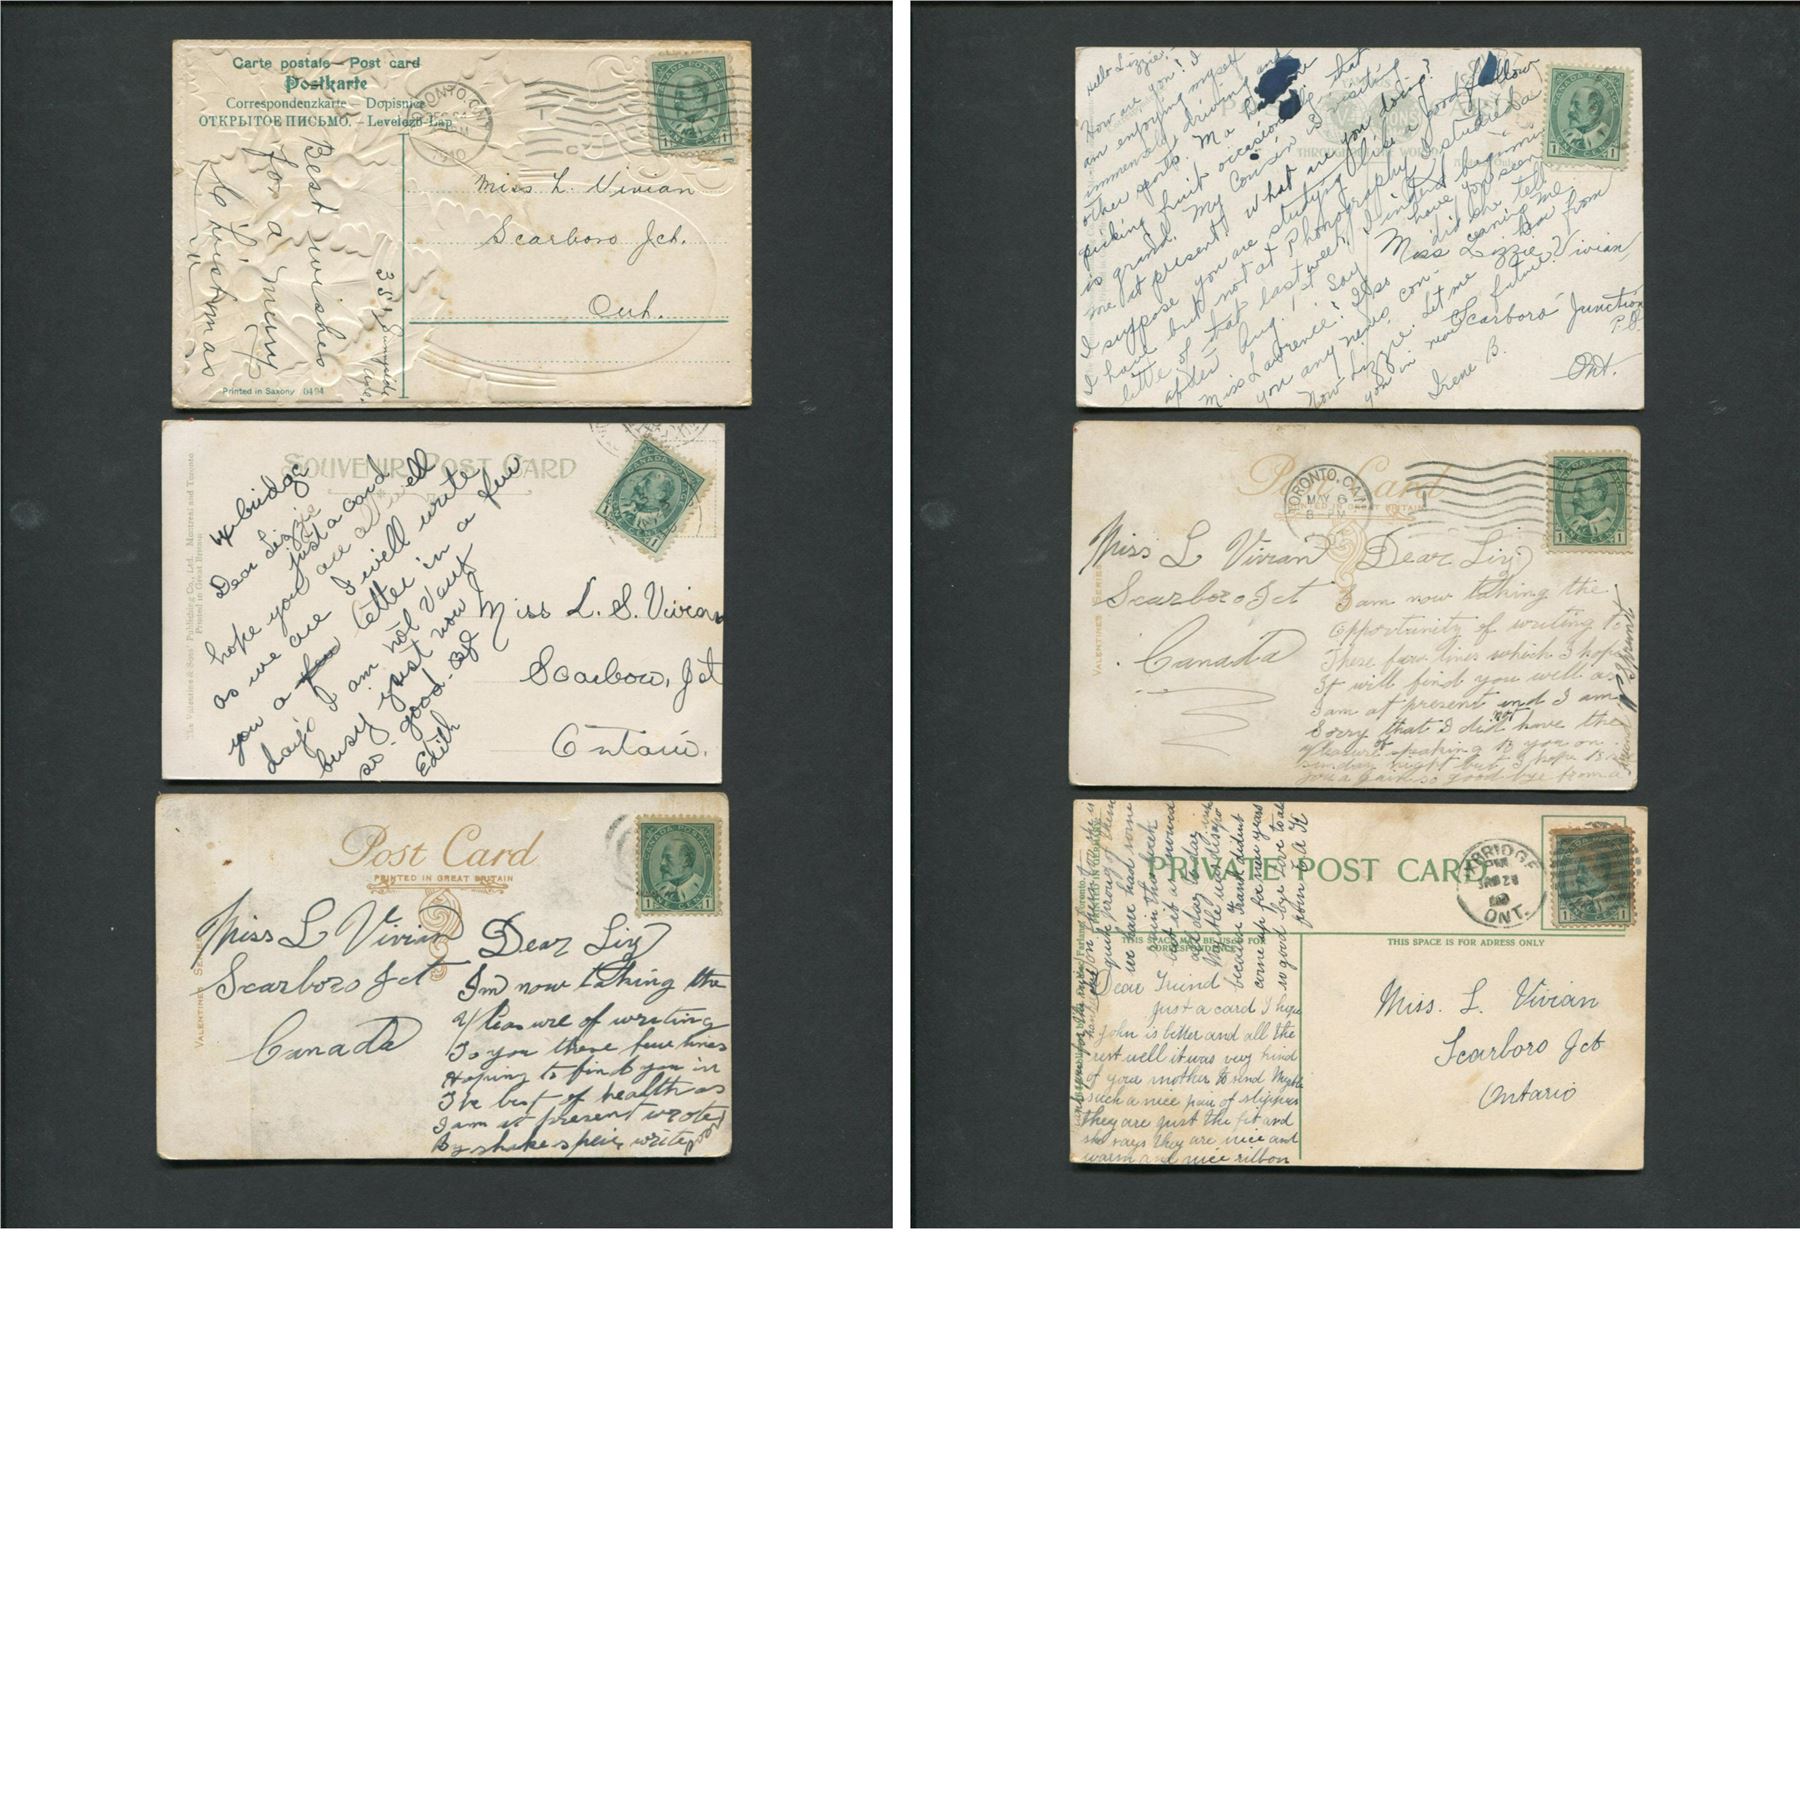 Carte postale – Post card
Postkarte
Correspondenzkarte – Dopisnice
ОТКРЫТОЕ ПИСЬМО. – Levelező-Lap
TORONTO, CAN.
1910
CANADA POSTAGE
1 ONE CENT 1
Best wishes
for a merry
Christmas
35 Sunnyside
Ave.
Miss L. Vivian
Scarboro Jct.
Ont.
Printed in Saxony 6494
SOUVENIR POST CARD
The Valentine & Sons' Publishing Co., Ltd. Montreal and Toronto
Printed in Great Britain
CANADA POSTAGE
ONE CENT 1
Uxbridge
Dear Lizzie
just a card
hope you are all well
as we are I will write
you a letter in a few
days I am not
busy just now
so good-by
Edith
Miss L. S. Vivian
Scarboro, Jct
Ontario.
Post Card
PRINTED IN GREAT BRITAIN
VALENTINES SERIES
CANADA POSTAGE
1 ONE CENT 1
Miss L Vivian
Scarboro Jct
Canada
Dear Lizy
I'm now taking the
Pleasure of writing
To you these few lines
Hoping to find you in
The best of health as
I am at present wrote
By shakespeir, write soon
Hello Lizzie:-
How are you? I
am enjoying myself
immensely driving and
other sports. Ma
picking fruit occasion
is grand. My cousin is visiting
me at present. What are you doing?
I suppose you are studying like a good fellow
I have but not at Phonography. I studied a
little of that last week. I intend beginning
after Aug. 1st. Say have you seen
Miss Lawrence? did she tell
you any news con- cerning me
Now Lizzie. Let me hear from
you in near future.
Irene B.
Miss Lizzie Vivian,
Scarboro Junction
P.O.
Ont.
CANADA POSTAGE
1 ONE CENT 1
Post Card
PRINTED IN GREAT BRITAIN
VALENTINES SERIES
TORONTO, CAN.
MAY 6
8 - PM
CANADA POSTAGE
1 ONE CENT 1
Miss L Vivian
Scarboro Jct
Canada
Dear Lizy
I am now taking the
Opportunity of writing to
These few lines which I hope
It will find you well as
I am at present and I am
Sorry that I did not have the
Pleasure of speaking to you on
Sunday night but I hope to
you again so good bye from a
friend Sprunt
PRIVATE POST CARD
THIS SPACE MAY BE USED FOR
CORRESPONDENCE
THIS SPACE IS FOR ADRESS ONLY
UXBRIDGE
PM
ONT.
1 ONE CENT 1
Dear Friend
just a card I hope
John is better and all the
rest well it was very kind
of your mother to send Myrtle
such a nice pair of slippers
they are just the fit and
she says they are nice and
warm and nice ribbon
quite proud of them
we have had some
rain this week
but it is around
all day today
because Frank didnt
come up for new years
so good bye love to all
from J A K
Miss. L. Vivian
Scarboro Jct
Ontario